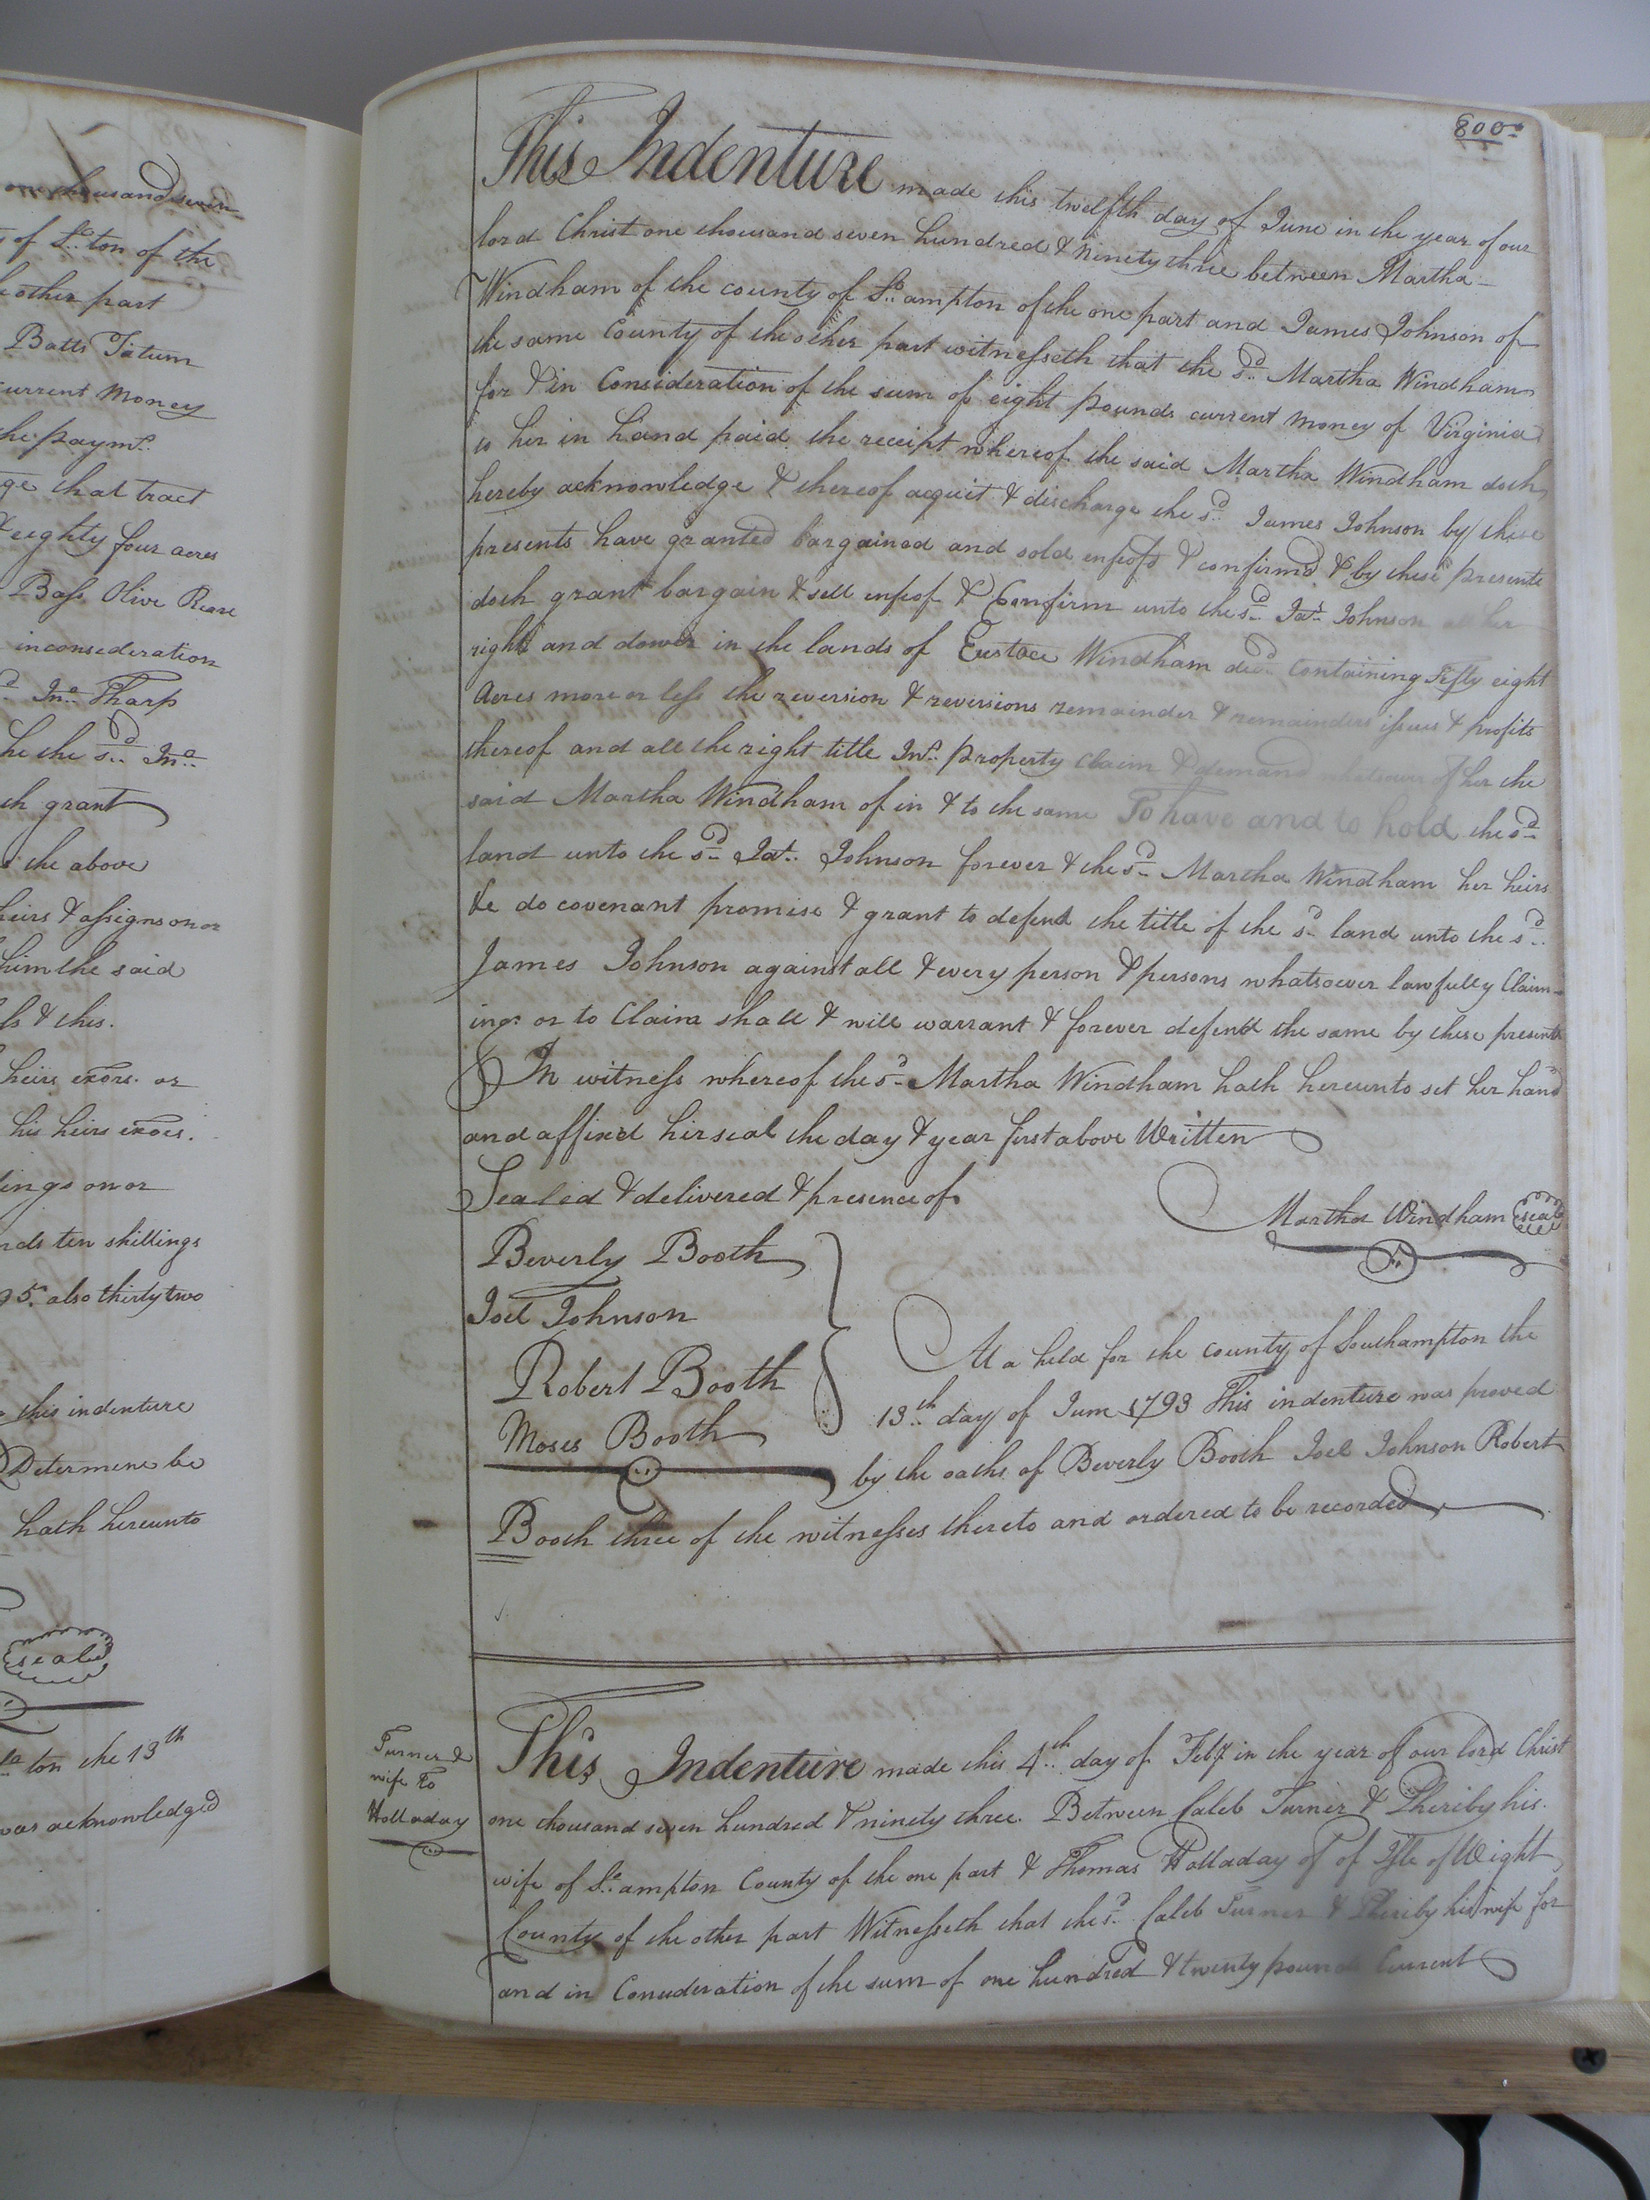 one thousand seven
of So.ton of the
other part
Batts Tatum
current Money
the paymt.
ge that tract
& eighty four acres
Bass Olive Rease
inconsederation
Jno. Tharp
he the sd. Jno.
th grant
s the above
heirs & assigns on or
him the said
ls & this.
heirs exors. or
his heirs exors.
ings on or
nds ten shillings
95. also thirty two
this indenture
Determine be
hath hereunto
seal
ton the 13th
was acknowledged
800.
This Indenture made this twelfth day of June in the year of our
lord Christ one thousand seven hundred & Ninety three between Martha
Windham of the county of So.ampton of the one part and James Johnson of
the same County of the other part witnesseth that the sd. Martha Windham
for & in Consideration of the sum of eight pounds current money of Virginia
to her in hand paid the receipt whereof the said Martha Windham doth
hereby acknowledge & thereof acquit & discharge the sd. James Johnson by these
presents have granted bargained and sold enfeofd & confirmd & by these presents
doth grant bargain & sell enfeof & Confirm unto the sd. Jas. Johnson all her
right and dower in the lands of Eustace Windham decd. Containing Fifty eight
Acres more or less the reversion & reversions remainder & remainders issues & profits
thereof and all the right title Int. property Claim & demand whatsoever of her the
said Martha Windham of in & to the same To have and to hold the sd.
land unto the sd. Jas. Johnson forever & the sd. Martha Windham her heirs
&c do covenant promise & grant to defend the title of the sd. land unto the sd.
James Johnson against all & every person & persons whatsoever lawfully Claim-
ing or to Claim shall & will warrant & forever defend the same by these presents
In witness whereof the sd. Martha Windham hath hereunto set her hand
and affixd her seal the day & year first above Written
Sealed & delivered & presence of
Martha Windham seal
Beverly Booth
Joel Johnson
Robert Booth
Moses Booth
At a held for the county of Southampton the
13th day of June 1793 This indenture was proved
by the oaths of Beverly Booth Joel Johnson Robert
Booth three of the witnesses thereto and ordered to be recorded
Turner &
wife To
Holladay
This Indenture made this 4th day of Feby in the year of our lord Christ
one thousand seven hundred & ninety three. Between Caleb Turner & Pheriby his
wife of So.ampton County of the one part & Thomas Holladay of of Isle of Wight
County of the other part Witnesseth that the sd. Caleb Turner & Pheriby his wife for
and in Consideration of the sum of one hundred & twenty pounds Current